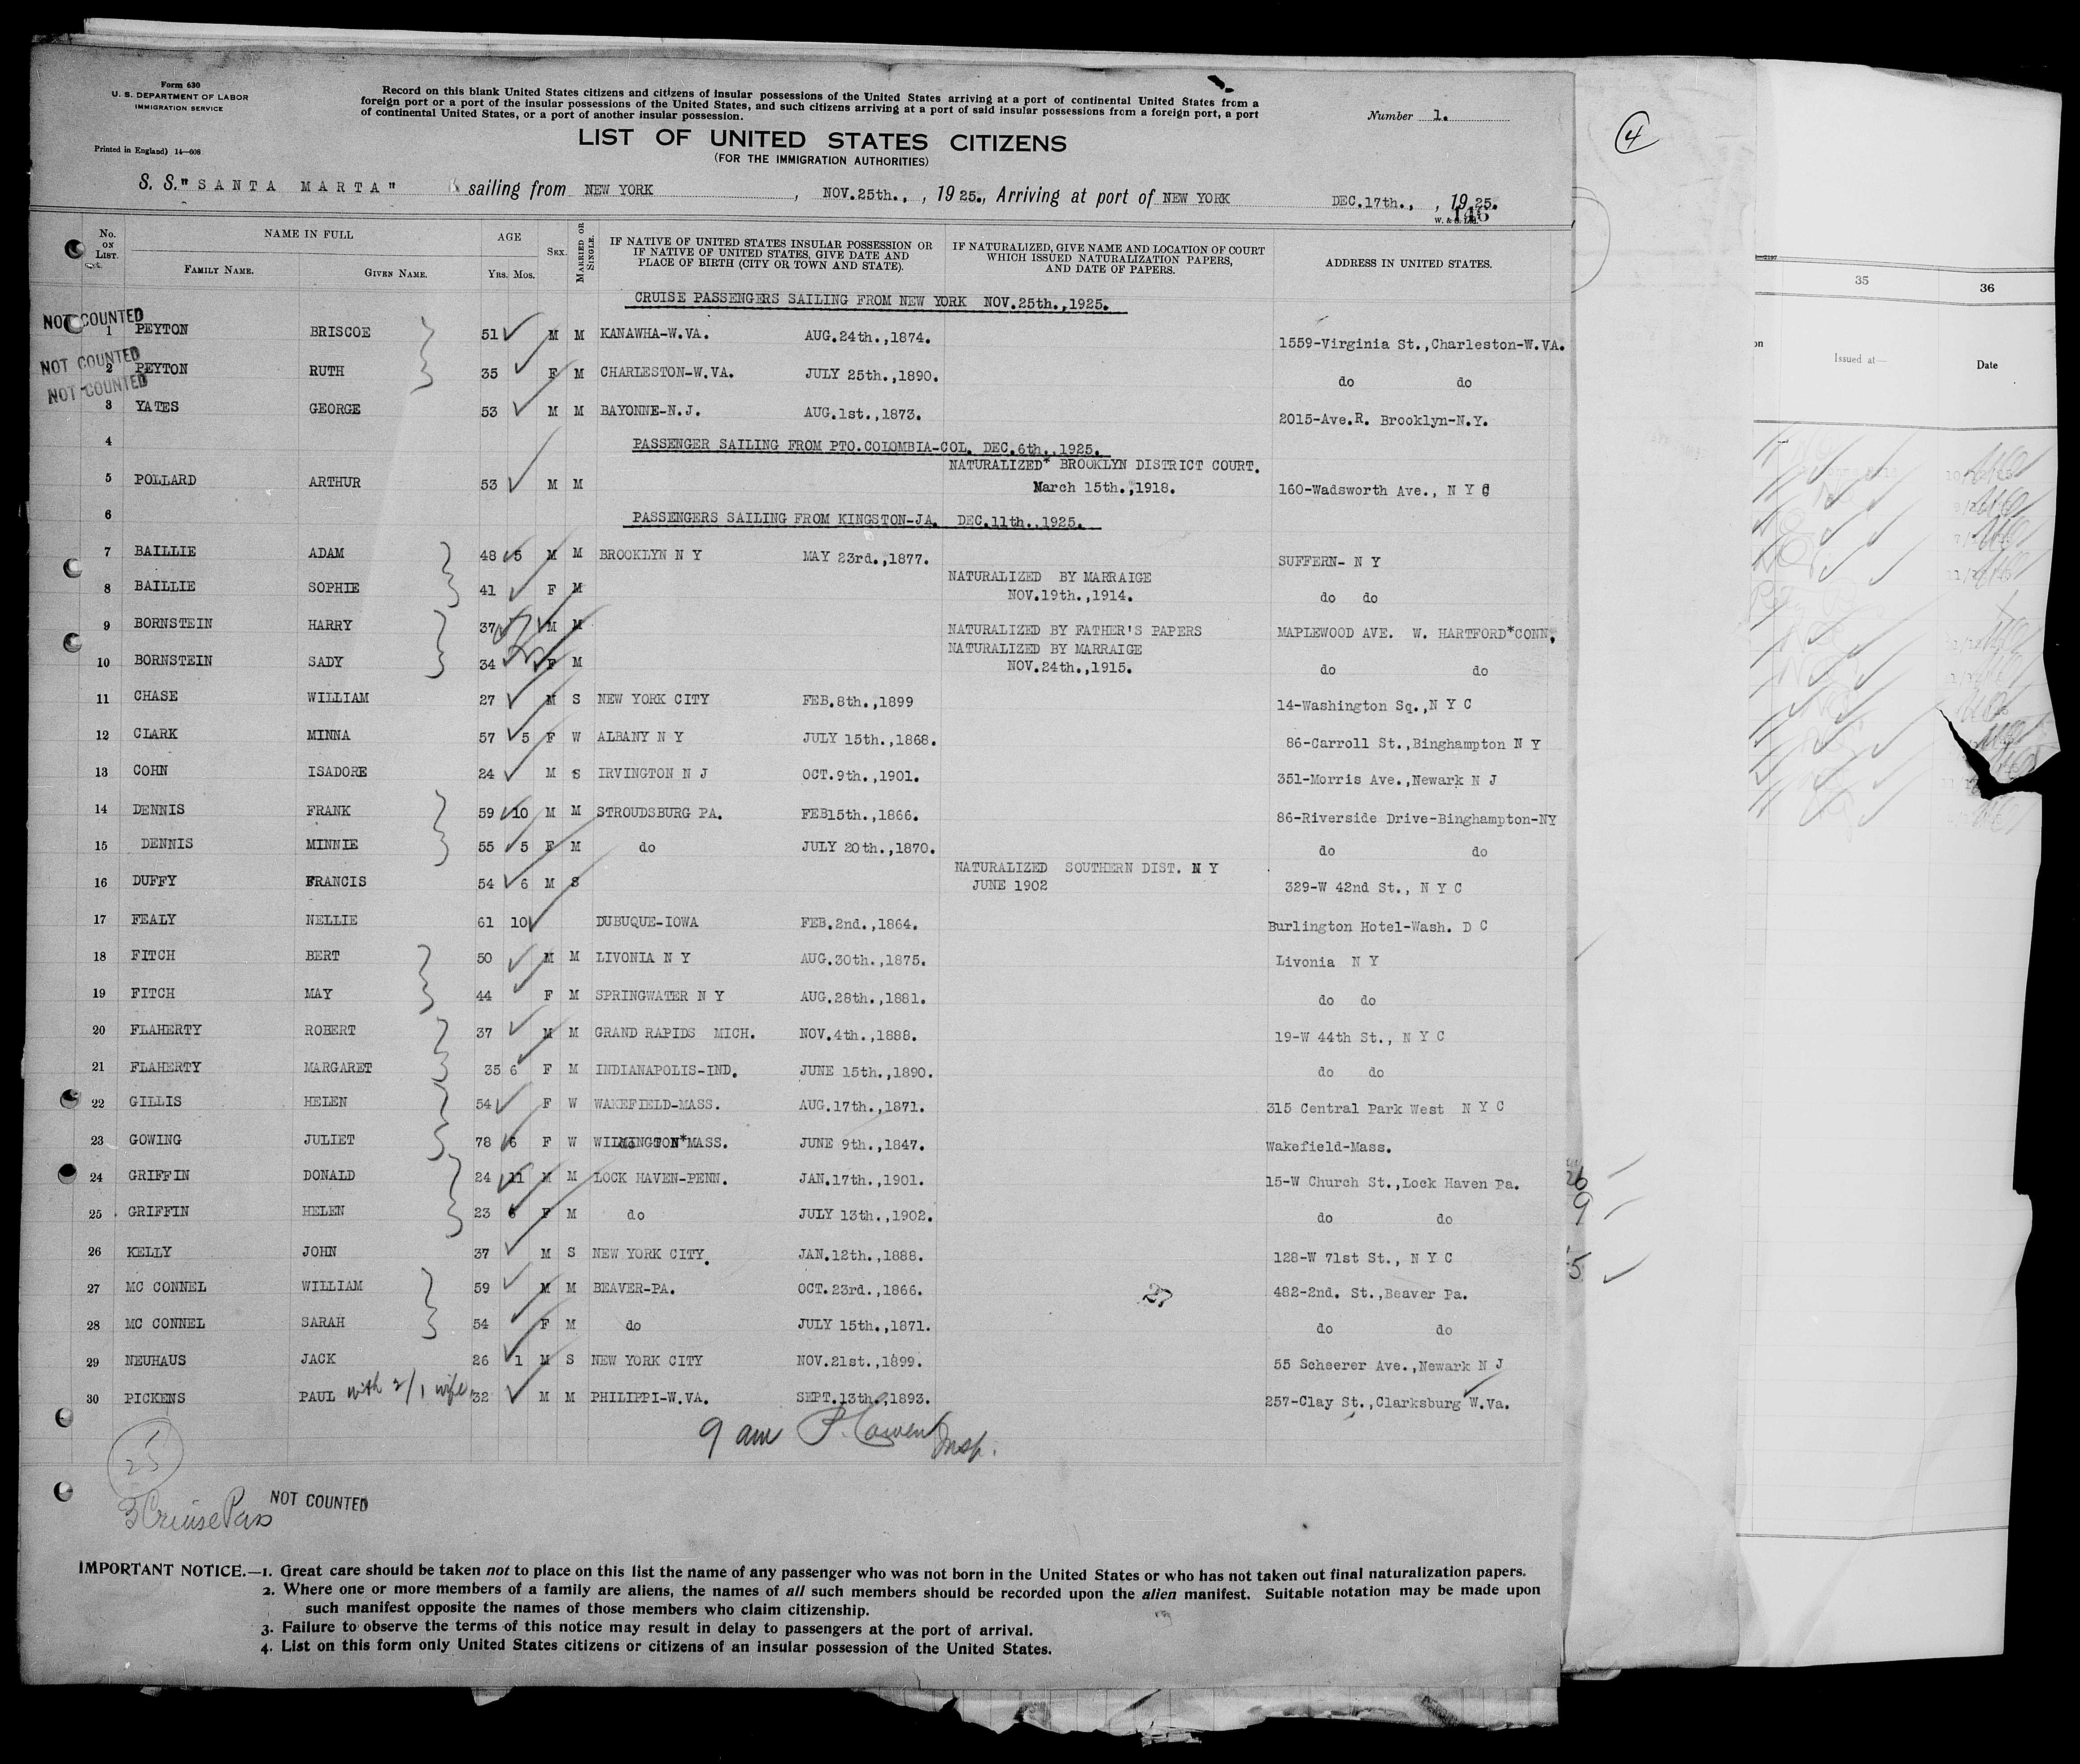 Form 630
U. S. DEPARTMENT OF LABOR
IMMIGRATION SERVICE
Printed in England) 14—608
Record on this blank United States citizens and citizens of insular possessions of the United States arriving at a port of continental United States from a
foreign port or a port of the insular possessions of the United States, and such citizens arriving at a port of said insular possessions from a foreign port, a port
of continental United States, or a port of another insular possession.
Number 1.
4
LIST OF UNITED STATES CITIZENS
(FOR THE IMMIGRATION AUTHORITIES)
S. S. "SANTA MARTA" sailing from NEW YORK, NOV.25th., , 1925., Arriving at port of NEW YORK DEC.17th., , 1925.
146
No. on List. NAME IN FULL AGE Sex. Married or Single. IF NATIVE OF UNITED STATES INSULAR POSSESSION OR IF NATIVE OF UNITED STATES, GIVE DATE AND PLACE OF BIRTH (CITY OR TOWN AND STATE). IF NATURALIZED, GIVE NAME AND LOCATION OF COURT WHICH ISSUED NATURALIZATION PAPERS, AND DATE OF PAPERS. ADDRESS IN UNITED STATES.
Family Name. Given Name. Yrs. Mos.
CRUISE PASSENGERS SAILING FROM NEW YORK NOV.25th.,1925.
NOT COUNTED
1 PEYTON BRISCOE 51 M M KANAWHA-W.VA. AUG.24th.,1874. 1559-Virginia St.,Charleston-W.VA.
NOT COUNTED
2 PEYTON RUTH 35 F M CHARLESTON-W.VA. JULY 25th.,1890. do do
NOT COUNTED
3 YATES GEORGE 53 M M BAYONNE-N.J. AUG.1st.,1873. 2015-Ave.R. Brooklyn-N.Y.
4 PASSENGER SAILING FROM PTO.COLOMBIA-COL. DEC.6th.,1925.
NATURALIZED* BROOKLYN DISTRICT COURT.
5 POLLARD ARTHUR 53 M M March 15th.,1918. 160-Wadsworth Ave., N Y C
6 PASSENGERS SAILING FROM KINGSTON-JA. DEC.11th.,1925.
7 BAILLIE ADAM 48 5 M M BROOKLYN N Y MAY 23rd.,1877. SUFFERN- N Y
NATURALIZED BY MARRAIGE
8 BAILLIE SOPHIE 41 F M NOV.19th.,1914. do do
9 BORNSTEIN HARRY 37 M M NATURALIZED BY FATHER'S PAPERS MAPLEWOOD AVE. W. HARTFORD*CONN.
NATURALIZED BY MARRAIGE
10 BORNSTEIN SADY 34 F M NOV.24th.,1915. do do
11 CHASE WILLIAM 27 M S NEW YORK CITY FEB.8th.,1899 14-Washington Sq.,N Y C
12 CLARK MINNA 57 5 F W ALBANY N Y JULY 15th.,1868. 86-Carroll St.,Binghampton N Y
13 COHN ISADORE 24 M S IRVINGTON N J OCT.9th.,1901. 351-Morris Ave.,Newark N J
14 DENNIS FRANK 59 10 M M STROUDSBURG PA. FEB15th.,1866. 86-Riverside Drive-Binghampton-NY
15 DENNIS MINNIE 55 5 F M do JULY 20th.,1870. do do
NATURALIZED SOUTHERN DIST. N Y
16 DUFFY FRANCIS 54 6 M S JUNE 1902 329-W 42nd St., N Y C
17 FEALY NELLIE 61 10 DUBUQUE-IOWA FEB.2nd.,1864. Burlington Hotel-Wash. D C
18 FITCH BERT 50 M M LIVONIA N Y AUG.30th.,1875. Livonia N Y
19 FITCH MAY 44 F M SPRINGWATER N Y AUG.28th.,1881. do do
20 FLAHERTY ROBERT 37 M M GRAND RAPIDS MICH. NOV.4th.,1888. 19-W 44th St., N Y C
21 FLAHERTY MARGARET 35 6 F M INDIANAPOLIS-IND. JUNE 15th.,1890. do do
22 GILLIS HELEN 54 F W WAKEFIELD-MASS. AUG.17th.,1871. 315 Central Park West N Y C
23 GOWING JULIET 78 6 F W WILMINGTON*MASS. JUNE 9th.,1847. Wakefield-Mass.
24 GRIFFIN DONALD 24 11 M M LOCK HAVEN-PENN. JAN.17th.,1901. 15-W Church St.,Lock Haven Pa.
25 GRIFFIN HELEN 23 6 F M do JULY 13th.,1902. do do
26 KELLY JOHN 37 M S NEW YORK CITY. JAN.12th.,1888. 128-W 71st St., N Y C
27 MC CONNEL WILLIAM 59 M M BEAVER-PA. OCT.23rd.,1866. 27 482-2nd. St.,Beaver Pa.
28 MC CONNEL SARAH 54 F M do JULY 15th.,1871. do do
29 NEUHAUS JACK 26 1 M S NEW YORK CITY NOV.21st.,1899. 55 Scheerer Ave.,Newark N J
30 PICKENS PAUL with 2/1 wife 32 M M PHILIPPI-W.VA. SEPT.13th.,1893. 257-Clay St.,Clarksburg W.Va.
9 am P. Cowen Insp.
25
3 Cruise Pass NOT COUNTED
IMPORTANT NOTICE.—1. Great care should be taken not to place on this list the name of any passenger who was not born in the United States or who has not taken out final naturalization papers.
2. Where one or more members of a family are aliens, the names of all such members should be recorded upon the alien manifest. Suitable notation may be made upon
such manifest opposite the names of those members who claim citizenship.
3. Failure to observe the terms of this notice may result in delay to passengers at the port of arrival.
4. List on this form only United States citizens or citizens of an insular possession of the United States.
35 36
Issued at— Date
26
9
5